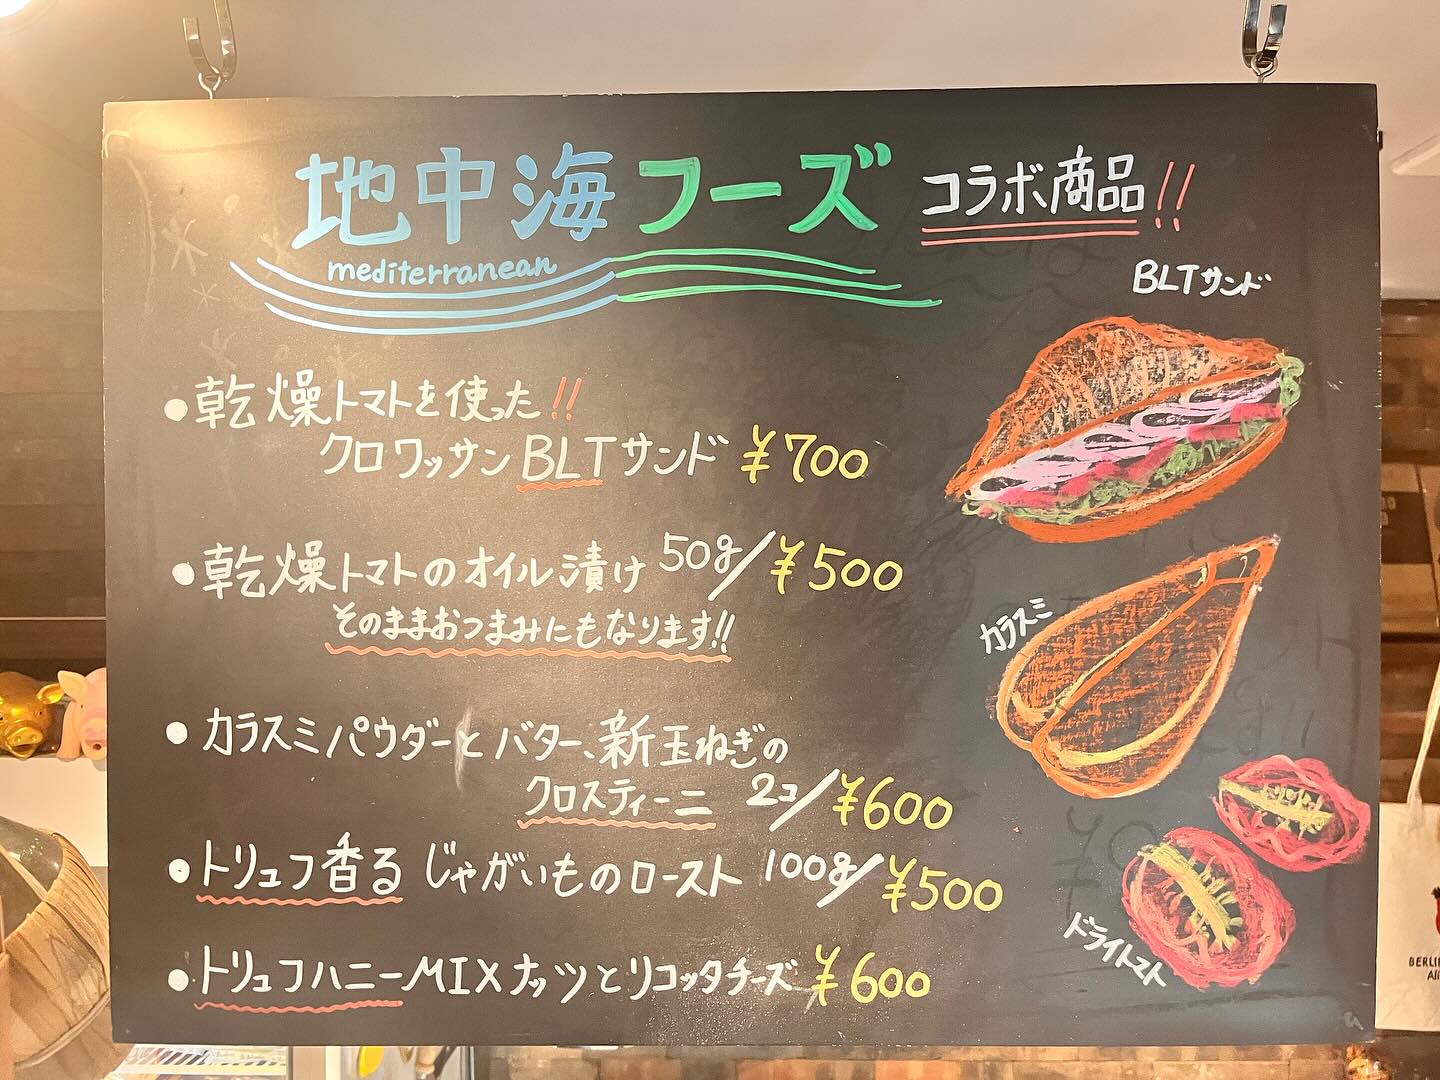 地中海フーズ コラボ商品!!
mediterranean
BLTサンド
• 乾燥トマトを使った!!
クロワッサンBLTサンド ¥700
• 乾燥トマトのオイル漬け 50g/¥500
そのままおつまみにもなります!!
カラスミ
• カラスミパウダーとバター、新玉ねぎの
クロスティーニ 2コ/¥600
• トリュフ香るじゃがいものロースト 100g/¥500
ドライトマト
• トリュフハニーMIXナッツとリコッタチーズ ¥600